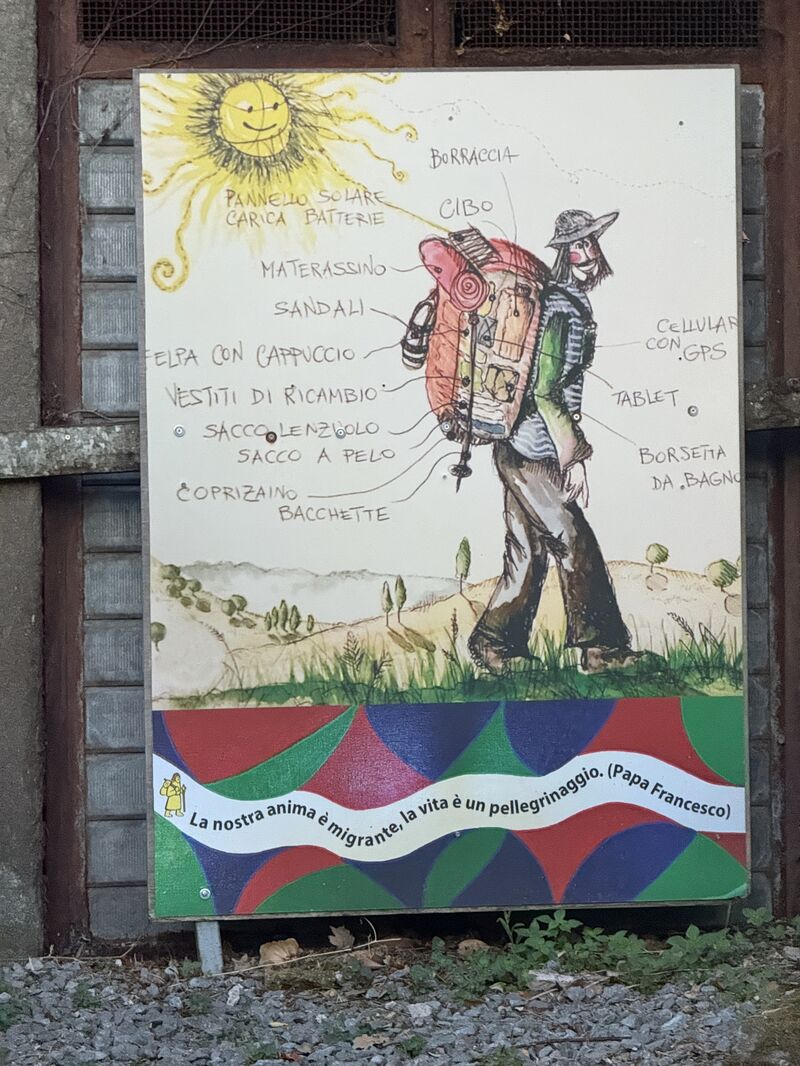 BORRACCIA
PANNELLO SOLARE
CARICA BATTERIE
CIBO
MATERASSINO
SANDALI
CELLULAR
CON GPS
FELPA CON CAPPUCCIO
TABLET
VESTITI DI RICAMBIO
SACCO LENZUOLO
SACCO A PELO
BORSETTA
DA BAGNO
COPRIZAINO
BACCHETTE
La nostra anima è migrante, la vita è un pellegrinaggio. (Papa Francesco)